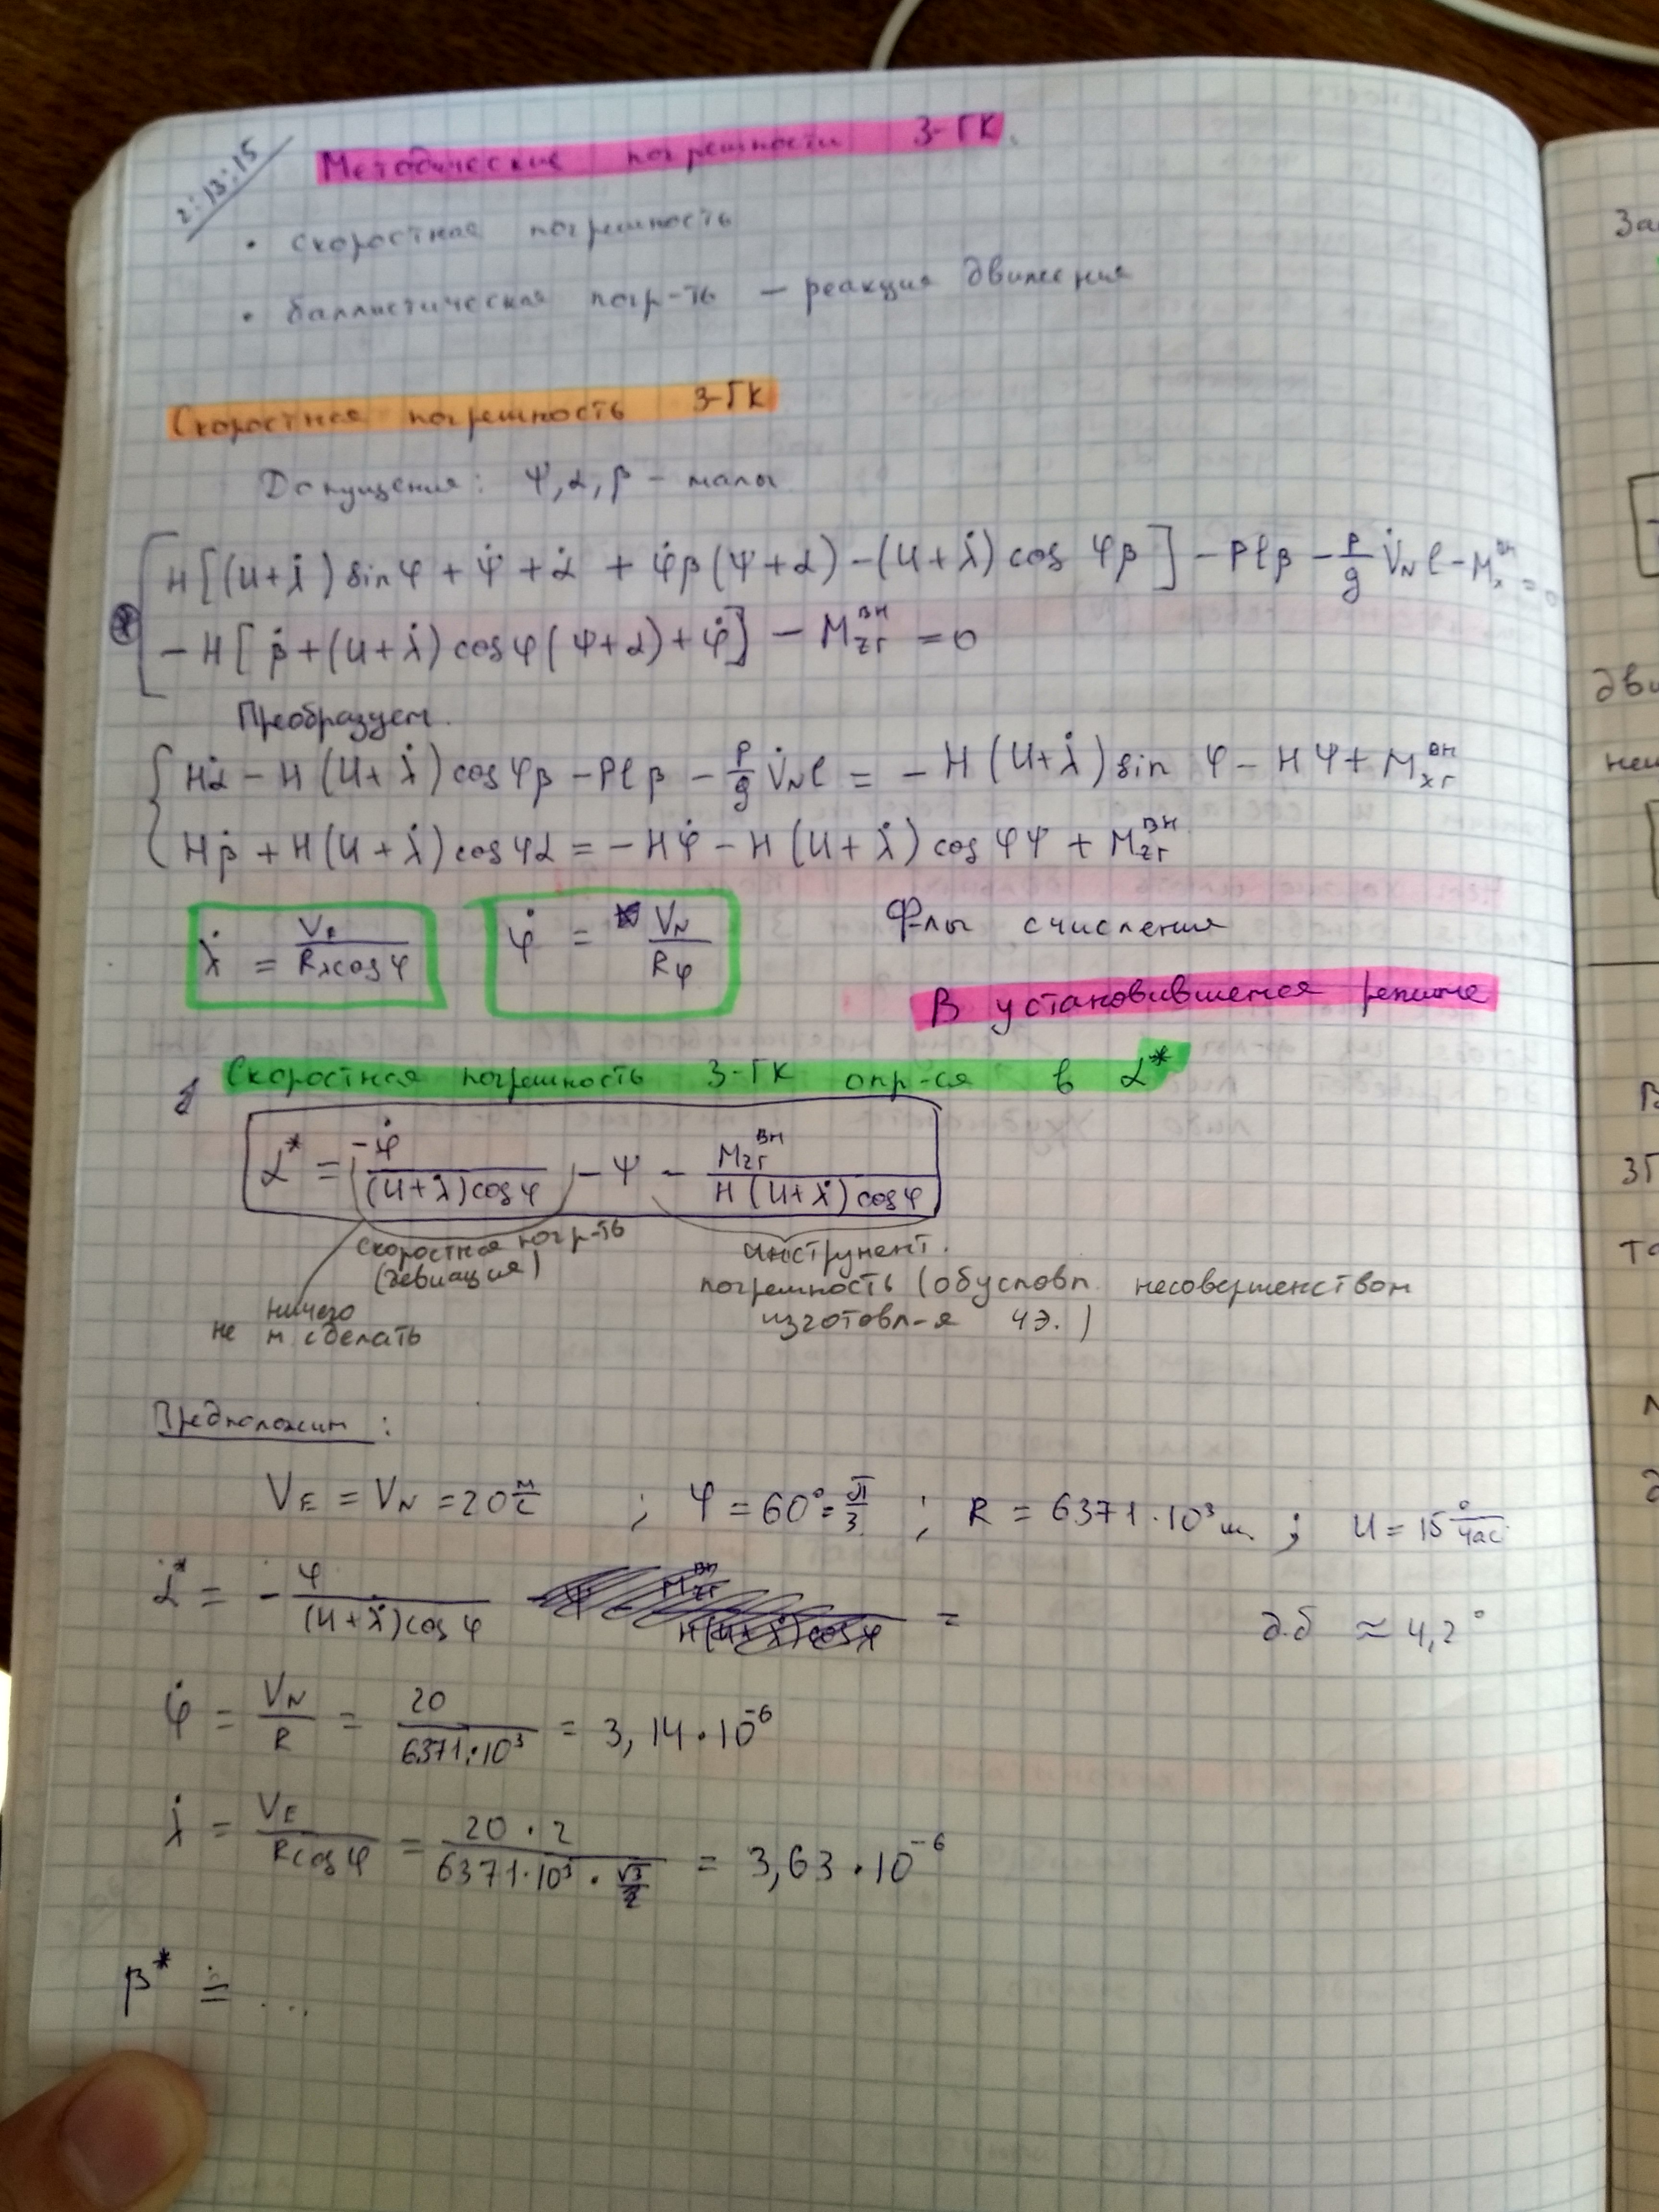 2:13:15
Методические погрешности 3-ГК.
• скоростная погрешность
• баллистическая погр-ть — реакция движения
Скоростная погрешность 3-ГК
Допущения: Ψ, α, β - малы
H[(U+λ̇) sin φ + Ψ̇ + α̇ + φ̇β(Ψ+α) - (U+λ̇) cos φβ] - Plβ - P/g V̇_N l - M_x^вн = 0
⊛
- H[β̇ + (U+λ̇) cos φ(Ψ+α) + φ̇] - M_zг^вн = 0
Преобразуем.
Hα̇ - H(U+λ̇) cos φβ - Plβ - P/g V̇_N l = - H(U+λ̇) sin φ - HΨ + M_xг^вн
Hβ̇ + H(U+λ̇) cos φα = - Hφ̇ - H(U+λ̇) cos φΨ + M_zг^вн
λ̇ = V_E / R_λ cos φ φ̇ = V_N / R_φ Ф-лы счисления
В установившемся режиме
Скоростная погрешность 3-ГК опр-ся в α*
α* = -φ̇ / (U+λ̇) cos φ - Ψ - M_zг^вн / H(U+λ̇) cos φ
скоростная погр-ть инструмент.
(девиация) погрешность (обусловл. несовершенством
ничего изготовл-я ЧЭ.)
не м. сделать
Предположим:
V_E = V_N = 20 м/с ; φ = 60° = π/3 ; R = 6371·10³ м. ; U = 15 °/час
α* = - φ / (U+λ̇) cos φ = д.б ≈ 4,2°
φ̇ = V_N / R = 20 / 6371·10³ = 3,14·10⁻⁶
λ̇ = V_E / R cos φ = 20·2 / 6371·10³ · √3/2 = 3,63·10⁻⁶
β* = ...